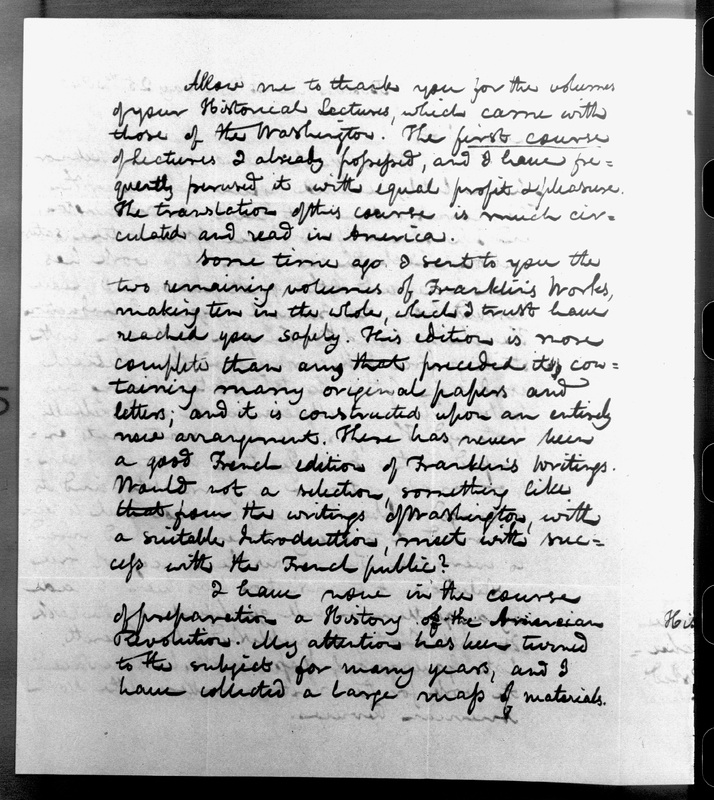 Allow me to thank you for the volumes
of your Historical Lectures, which came with
those of the Washington. The first course
of Lectures I already possessed, and I have fre=
quently perused it with equal profit & pleasure.
The translation of this course is much cir=
culated and read in America.
Some time ago I sent to you the
two remaining volumes of Franklin's Works,
making ten in the whole, which I trust have
reached you safely. This edition is more
complete than any that preceded it, con=
taining many original papers and
letters; and it is constructed upon an entirely
new arrangement. There has never been
a good French edition of Franklin's writings.
Would not a selection, something like
that from the writings of Washington, with
a suitable Introduction, meet with suc=
cess with the French public?
I have now in the course
of preparation a History of the American
Revolution. My attention has been turned
to the subject for many years, and I
have collected a large mass of materials.
His